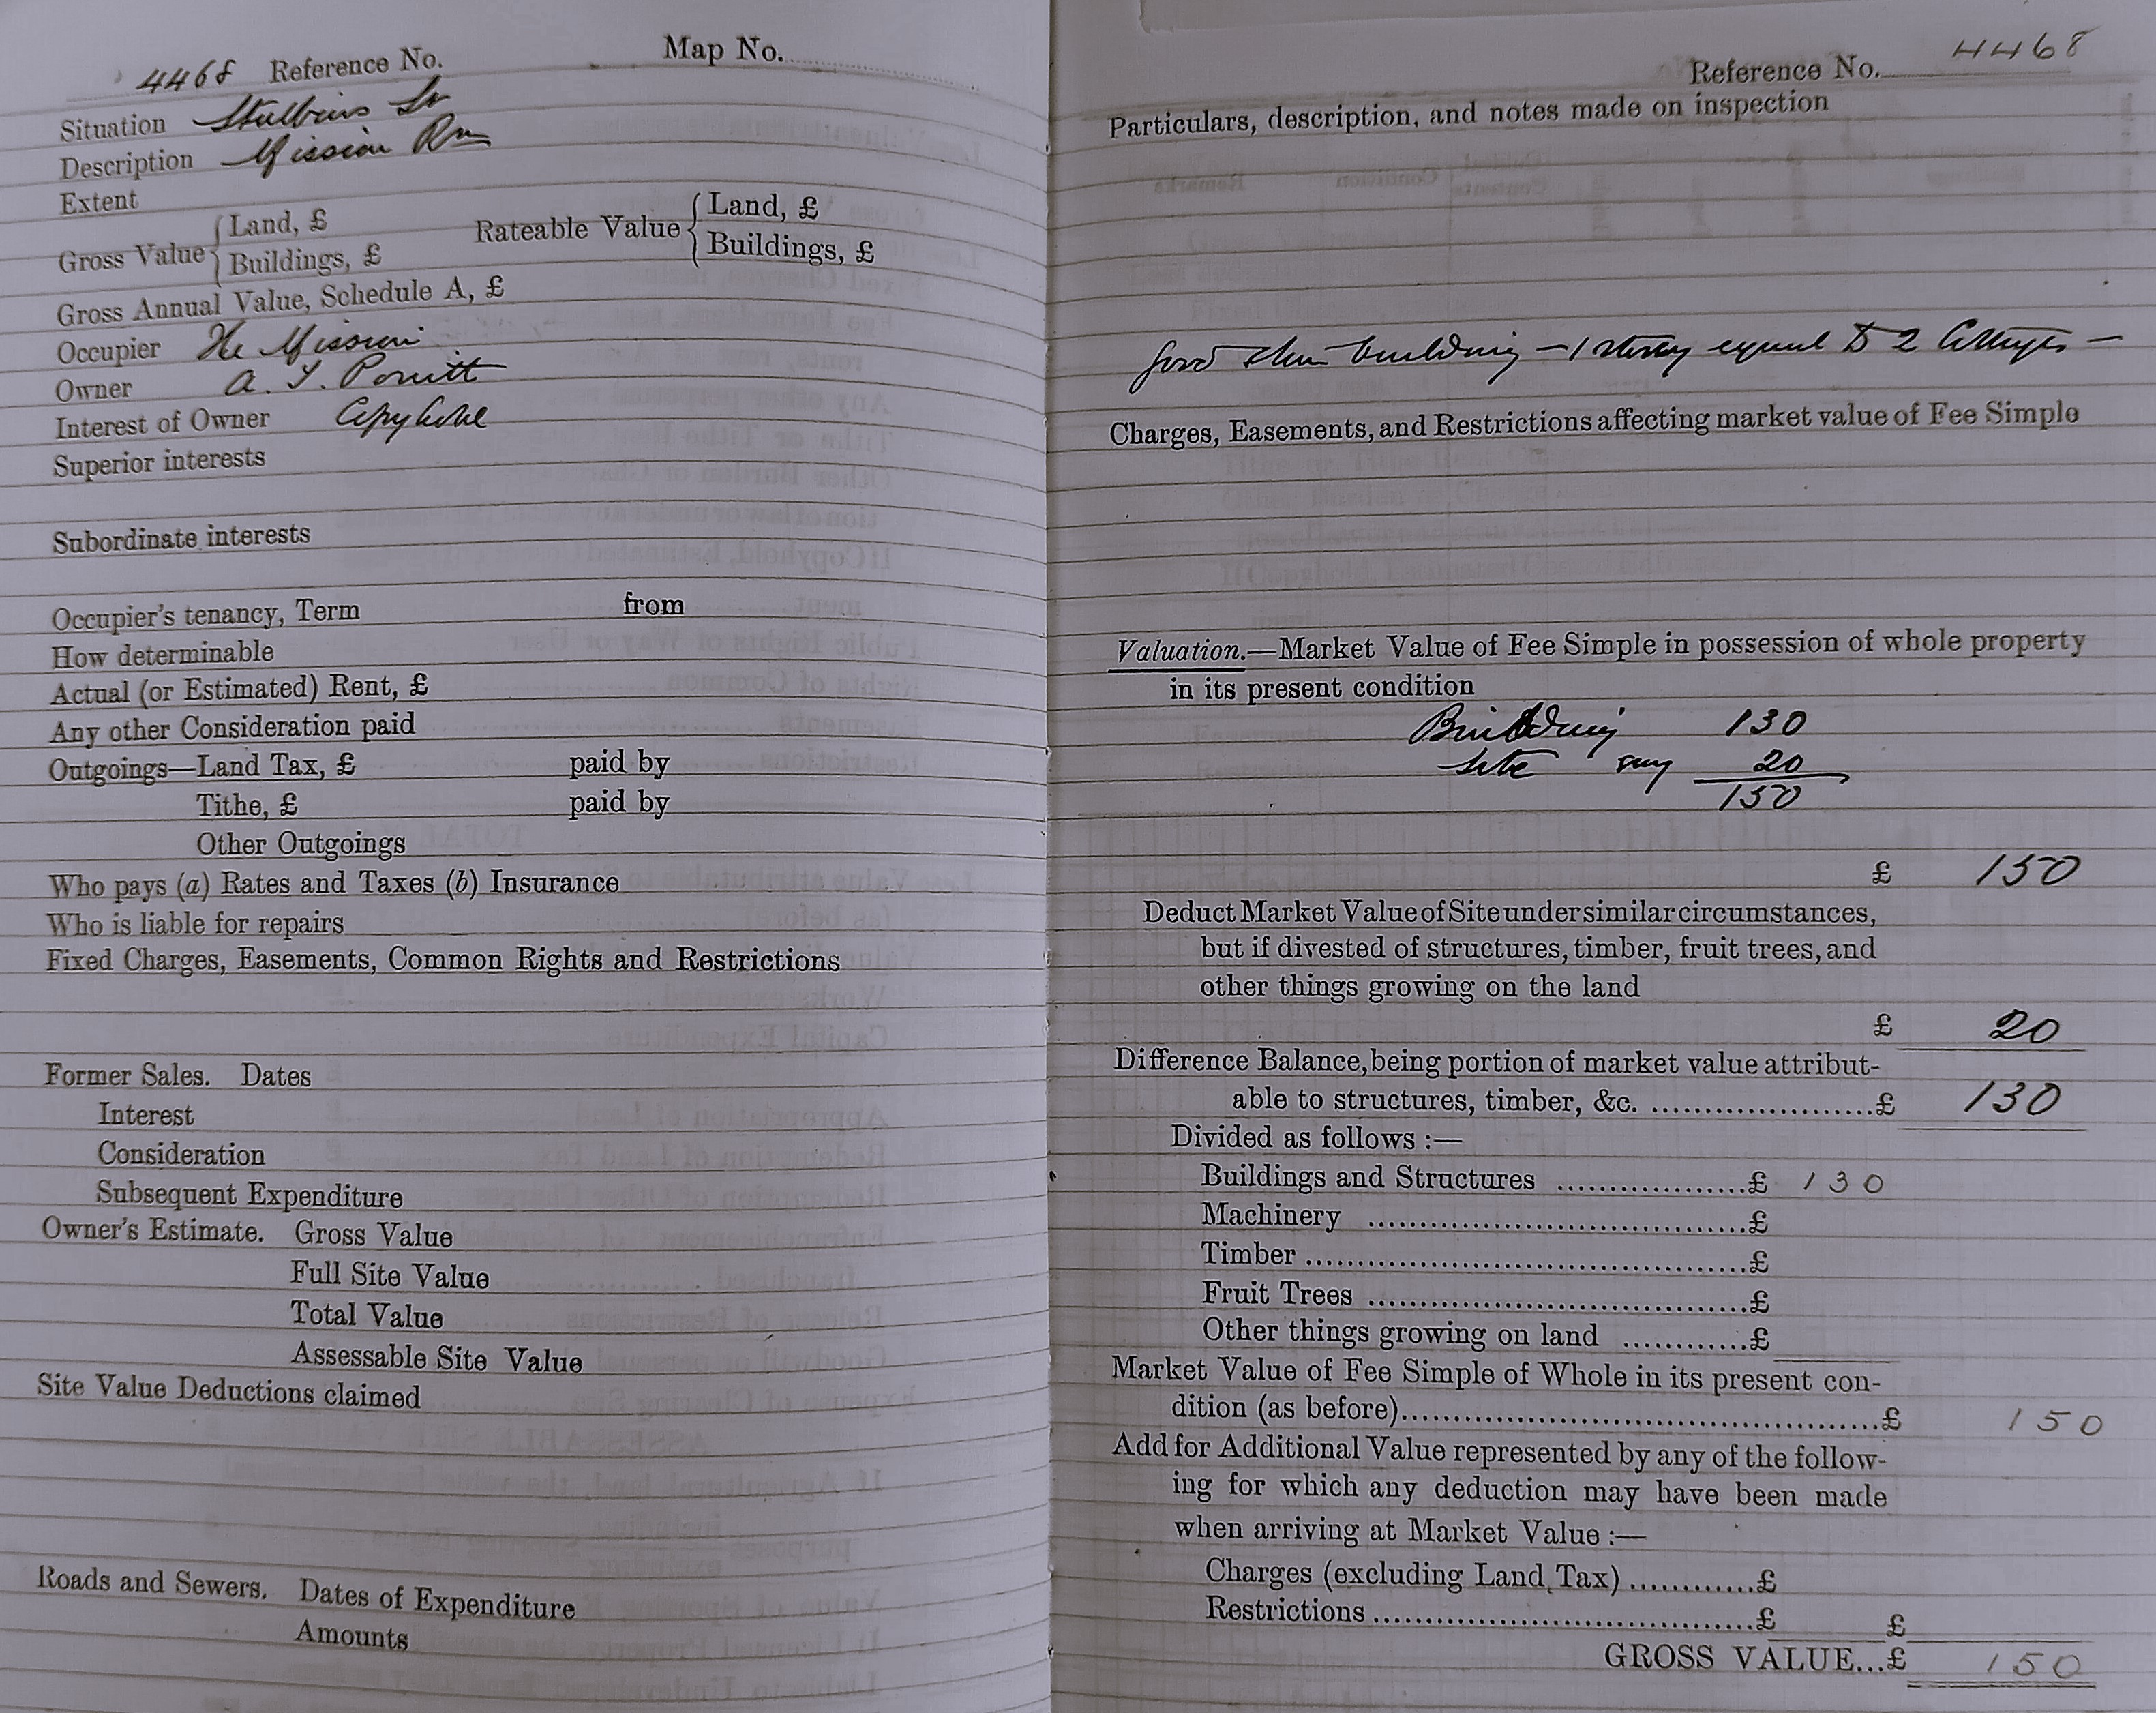 4468 Reference No. Map No.
Situation
Description Mission Rm
Extent
Gross Value { Land, £
Buildings, £
Rateable Value { Land, £
Buildings, £
Gross Annual Value, Schedule A, £
Occupier The Mission
Owner A.
Interest of Owner Copyhold
Superior interests
Subordinate interests
Occupier's tenancy, Term from
How determinable
Actual (or Estimated) Rent, £
Any other Consideration paid
Outgoings—Land Tax, £ paid by
Tithe, £ paid by
Other Outgoings
Who pays (a) Rates and Taxes (b) Insurance
Who is liable for repairs
Fixed Charges, Easements, Common Rights and Restrictions
Former Sales. Dates
Interest
Consideration
Subsequent Expenditure
Owner's Estimate. Gross Value
Full Site Value
Total Value
Assessable Site Value
Site Value Deductions claimed
Roads and Sewers. Dates of Expenditure
Amounts
Reference No. 4468
Particulars, description, and notes made on inspection
good building — 1 storey equal to 2 Cottages —
Charges, Easements, and Restrictions affecting market value of Fee Simple
Valuation.—Market Value of Fee Simple in possession of whole property
in its present condition
Building 130
Site say 20
150
£ 150
Deduct Market Value of Site under similar circumstances,
but if divested of structures, timber, fruit trees, and
other things growing on the land
£ 20
Difference Balance, being portion of market value attribut-
able to structures, timber, &c. ......................£ 130
Divided as follows :—
Buildings and Structures ...................£ 130
Machinery ......................................£
Timber ............................................£
Fruit Trees ......................................£
Other things growing on land ............£
Market Value of Fee Simple of Whole in its present con-
dition (as before)................................................£ 150
Add for Additional Value represented by any of the follow-
ing for which any deduction may have been made
when arriving at Market Value :—
Charges (excluding Land Tax) ............£
Restrictions ......................................£ £
GROSS VALUE...£ 150